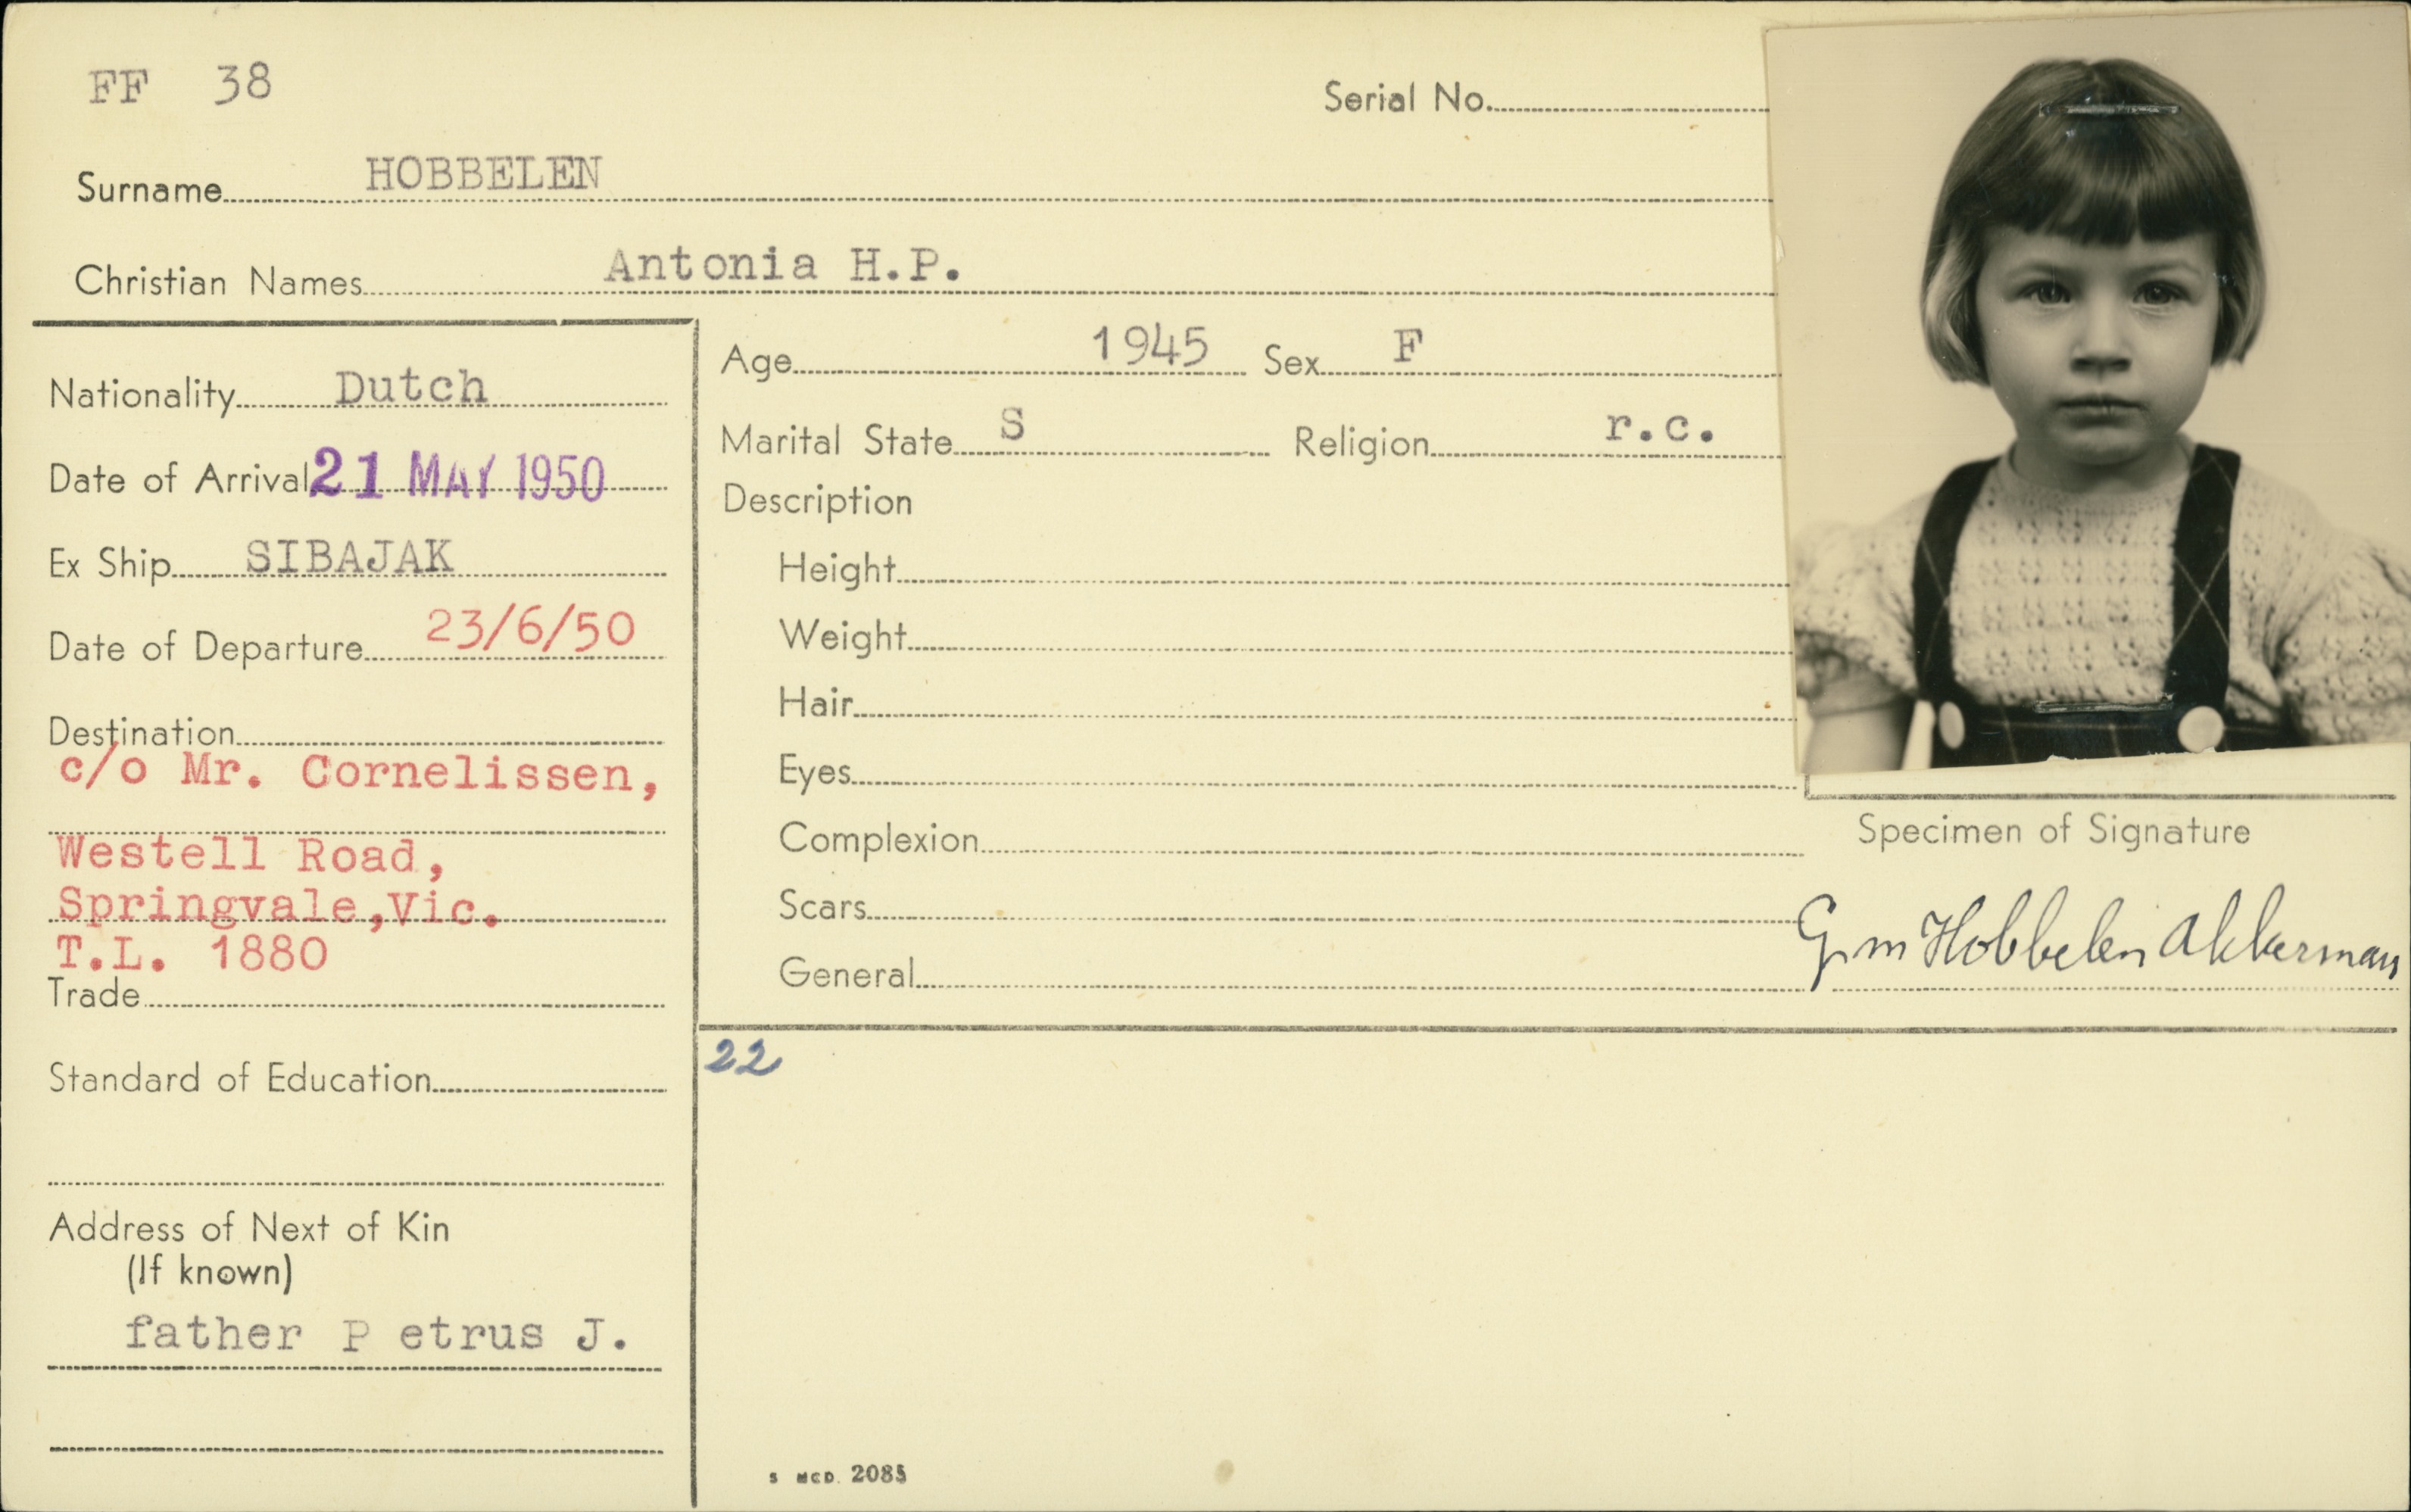 FF 38
Serial No.
Surname HOBBELEN
Christian Names Antonia H.P.
Nationality Dutch
Date of Arrival 21 MAY 1950
Ex Ship SIBAJAK
Date of Departure 23/6/50
Destination
c/o Mr. Cornelissen,
Westell Road,
Springvale,Vic.
T.L. 1880
Trade
Standard of Education
Address of Next of Kin
(If known)
father P etrus J.
Age 1945 Sex F
Marital State S Religion r.c.
Description
Height
Weight
Hair
Eyes
Complexion
Scars
General
Specimen of Signature
G m Hobbelen Akkerman
22
S MCD. 2085